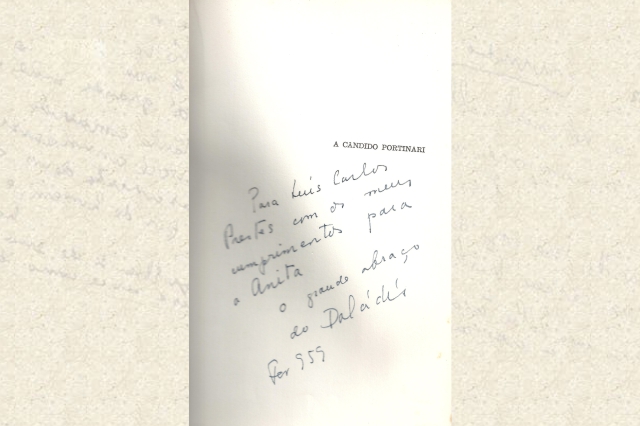 A CANDIDO PORTINARI
Para Luís Carlos
Prestes com os meus
cumprimentos para
a Anita
o grande abraço
do Dalcídio
959